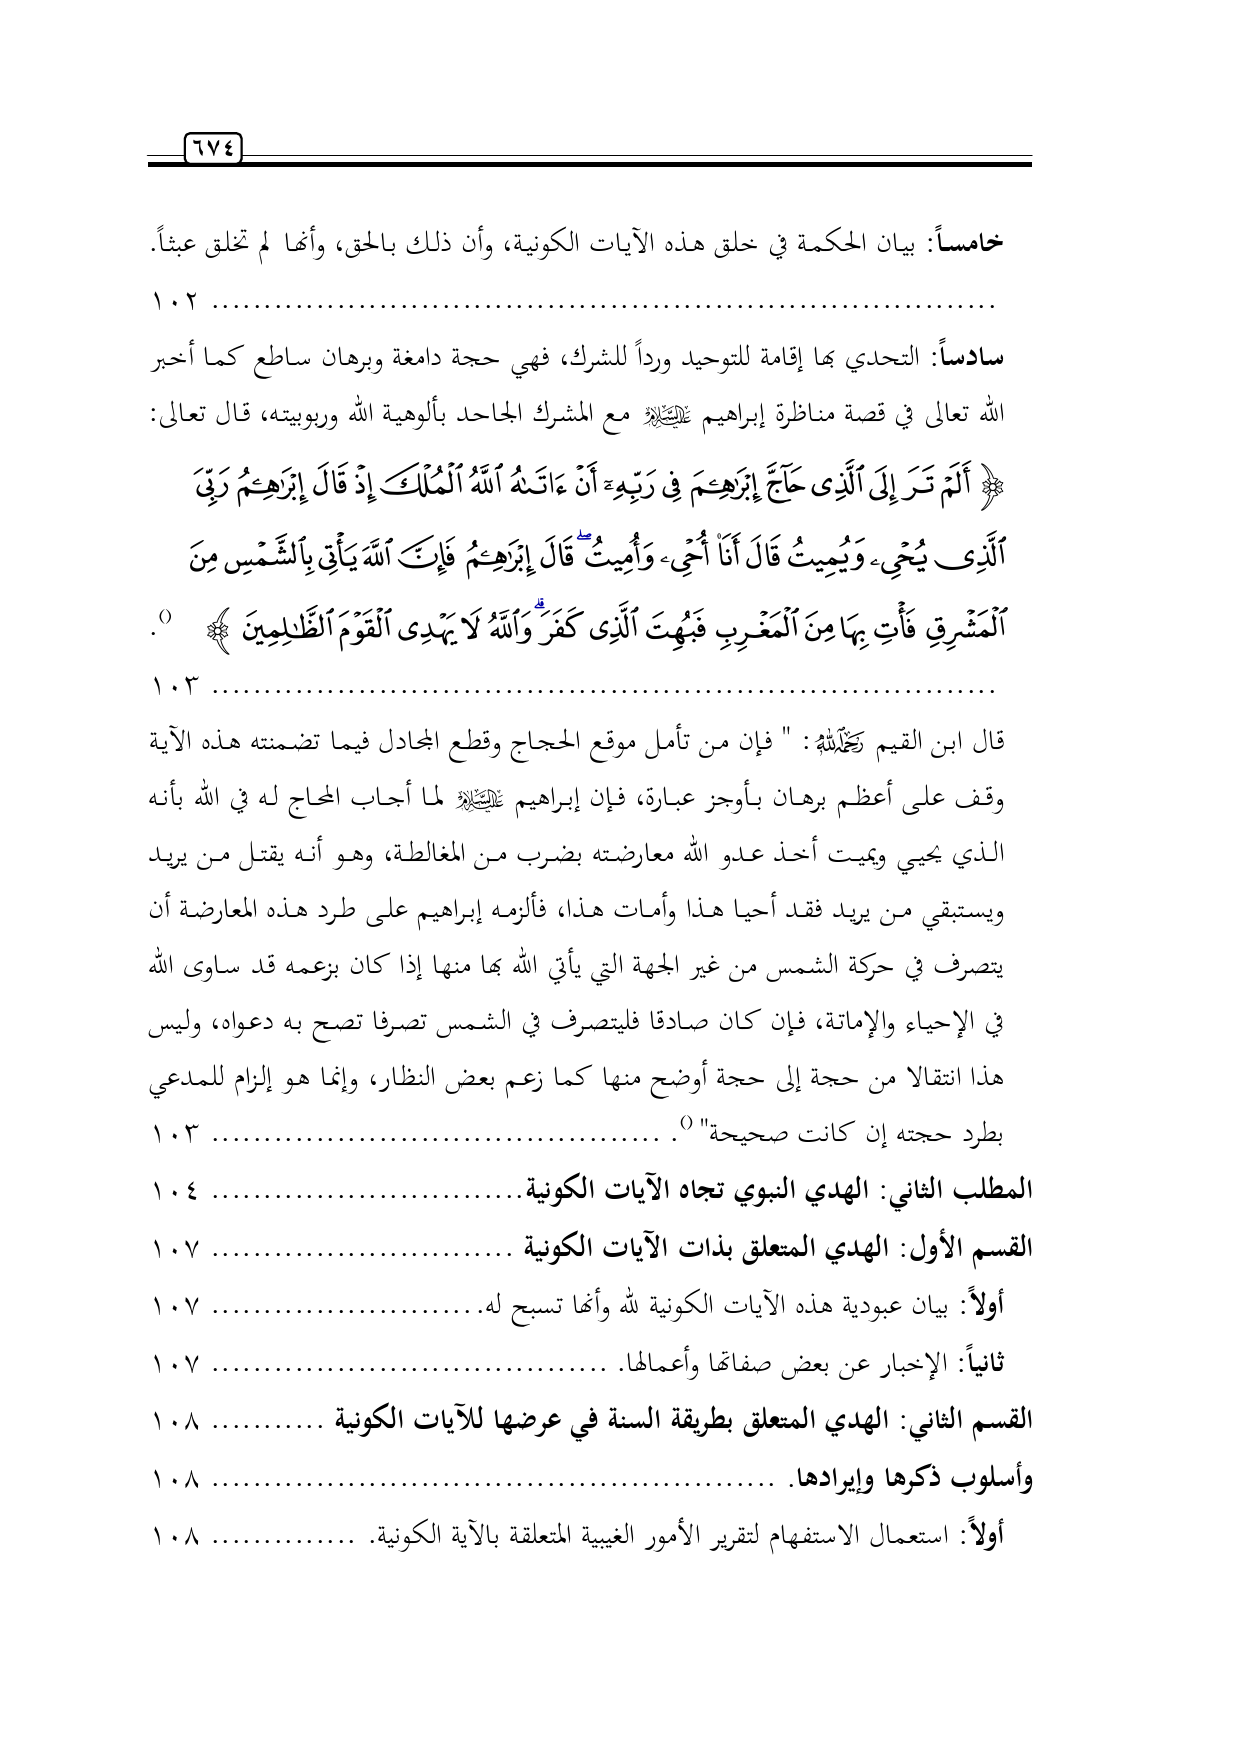 ٦٧٤
خامساً: بيان الحكمة في خلق هذه الآيات الكونية، وأن ذلك بالحق، وأنها لم تخلق عبثاً.
........................................................................... ١٠٢
سادساً: التحدي بها إقامة للتوحيد ورداً للشرك، فهي حجة دامغة وبرهان ساطع كما أخبر
الله تعالى في قصة مناظرة إبراهيم عليه السلام مع المشرك الجاحد بألوهية الله وربوبيته، قال تعالى:
﴿ أَلَمْ تَرَ إِلَى ٱلَّذِى حَآجَّ إِبْرَٰهِـۧمَ فِى رَبِّهِۦٓ أَنْ ءَاتَىٰهُ ٱللَّهُ ٱلْمُلْكَ إِذْ قَالَ إِبْرَٰهِـۧمُ رَبِّىَ
ٱلَّذِى يُحْىِۦ وَيُمِيتُ قَالَ أَنَا۠ أُحْىِۦ وَأُمِيتُ ۖ قَالَ إِبْرَٰهِـۧمُ فَإِنَّ ٱللَّهَ يَأْتِى بِٱلشَّمْسِ مِنَ
ٱلْمَشْرِقِ فَأْتِ بِهَا مِنَ ٱلْمَغْرِبِ فَبُهِتَ ٱلَّذِى كَفَرَ ۗ وَٱللَّهُ لَا يَهْدِى ٱلْقَوْمَ ٱلظَّٰلِمِينَ ﴾ ().
........................................................................... ١٠٣
قال ابن القيم رحمه الله: " فإن من تأمل موقع الحجاج وقطع المجادل فيما تضمنته هذه الآية
وقف على أعظم برهان بأوجز عبارة، فإن إبراهيم عليه السلام لما أجاب المحاج له في الله بأنه
الذي يحيي ويميت أخذ عدو الله معارضته بضرب من المغالطة، وهو أنه يقتل من يريد
ويستبقي من يريد فقد أحيا هذا وأمات هذا، فألزمه إبراهيم على طرد هذه المعارضة أن
يتصرف في حركة الشمس من غير الجهة التي يأتي الله بها منها إذا كان بزعمه قد ساوى الله
في الإحياء والإماتة، فإن كان صادقا فليتصرف في الشمس تصرفا تصح به دعواه، وليس
هذا انتقالا من حجة إلى حجة أوضح منها كما زعم بعض النظار، وإنما هو إلزام للمدعي
بطرد حجته إن كانت صحيحة" (). ........................................... ١٠٣
المطلب الثاني: الهدي النبوي تجاه الآيات الكونية.............................. ١٠٤
القسم الأول: الهدي المتعلق بذات الآيات الكونية ............................. ١٠٧
أولاً: بيان عبودية هذه الآيات الكونية لله وأنها تسبح له......................... ١٠٧
ثانياً: الإخبار عن بعض صفاتها وأعمالها. ...................................... ١٠٧
القسم الثاني: الهدي المتعلق بطريقة السنة في عرضها للآيات الكونية ........... ١٠٨
وأسلوب ذكرها وإيرادها. ...................................................... ١٠٨
أولاً: استعمال الاستفهام لتقرير الأمور الغيبية المتعلقة بالآية الكونية. .............. ١٠٨